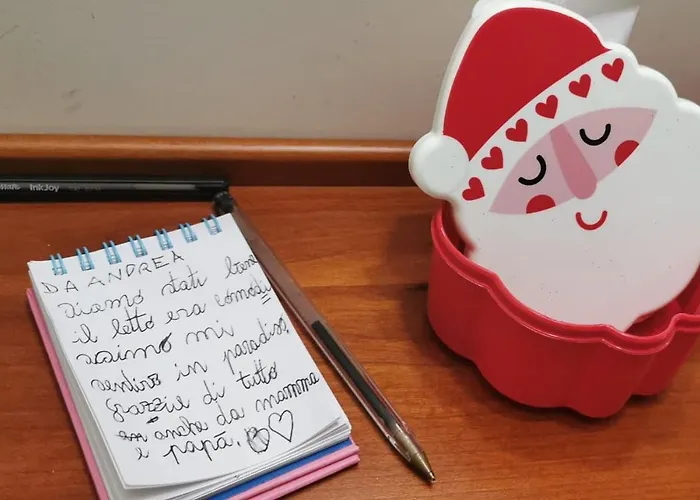 InkJoy
DA ANDREA
siamo stati bene
il letto era comodi
ssimo mi
sentivo in paradiso,
grazie di tutto
anche da mamma
e papà.